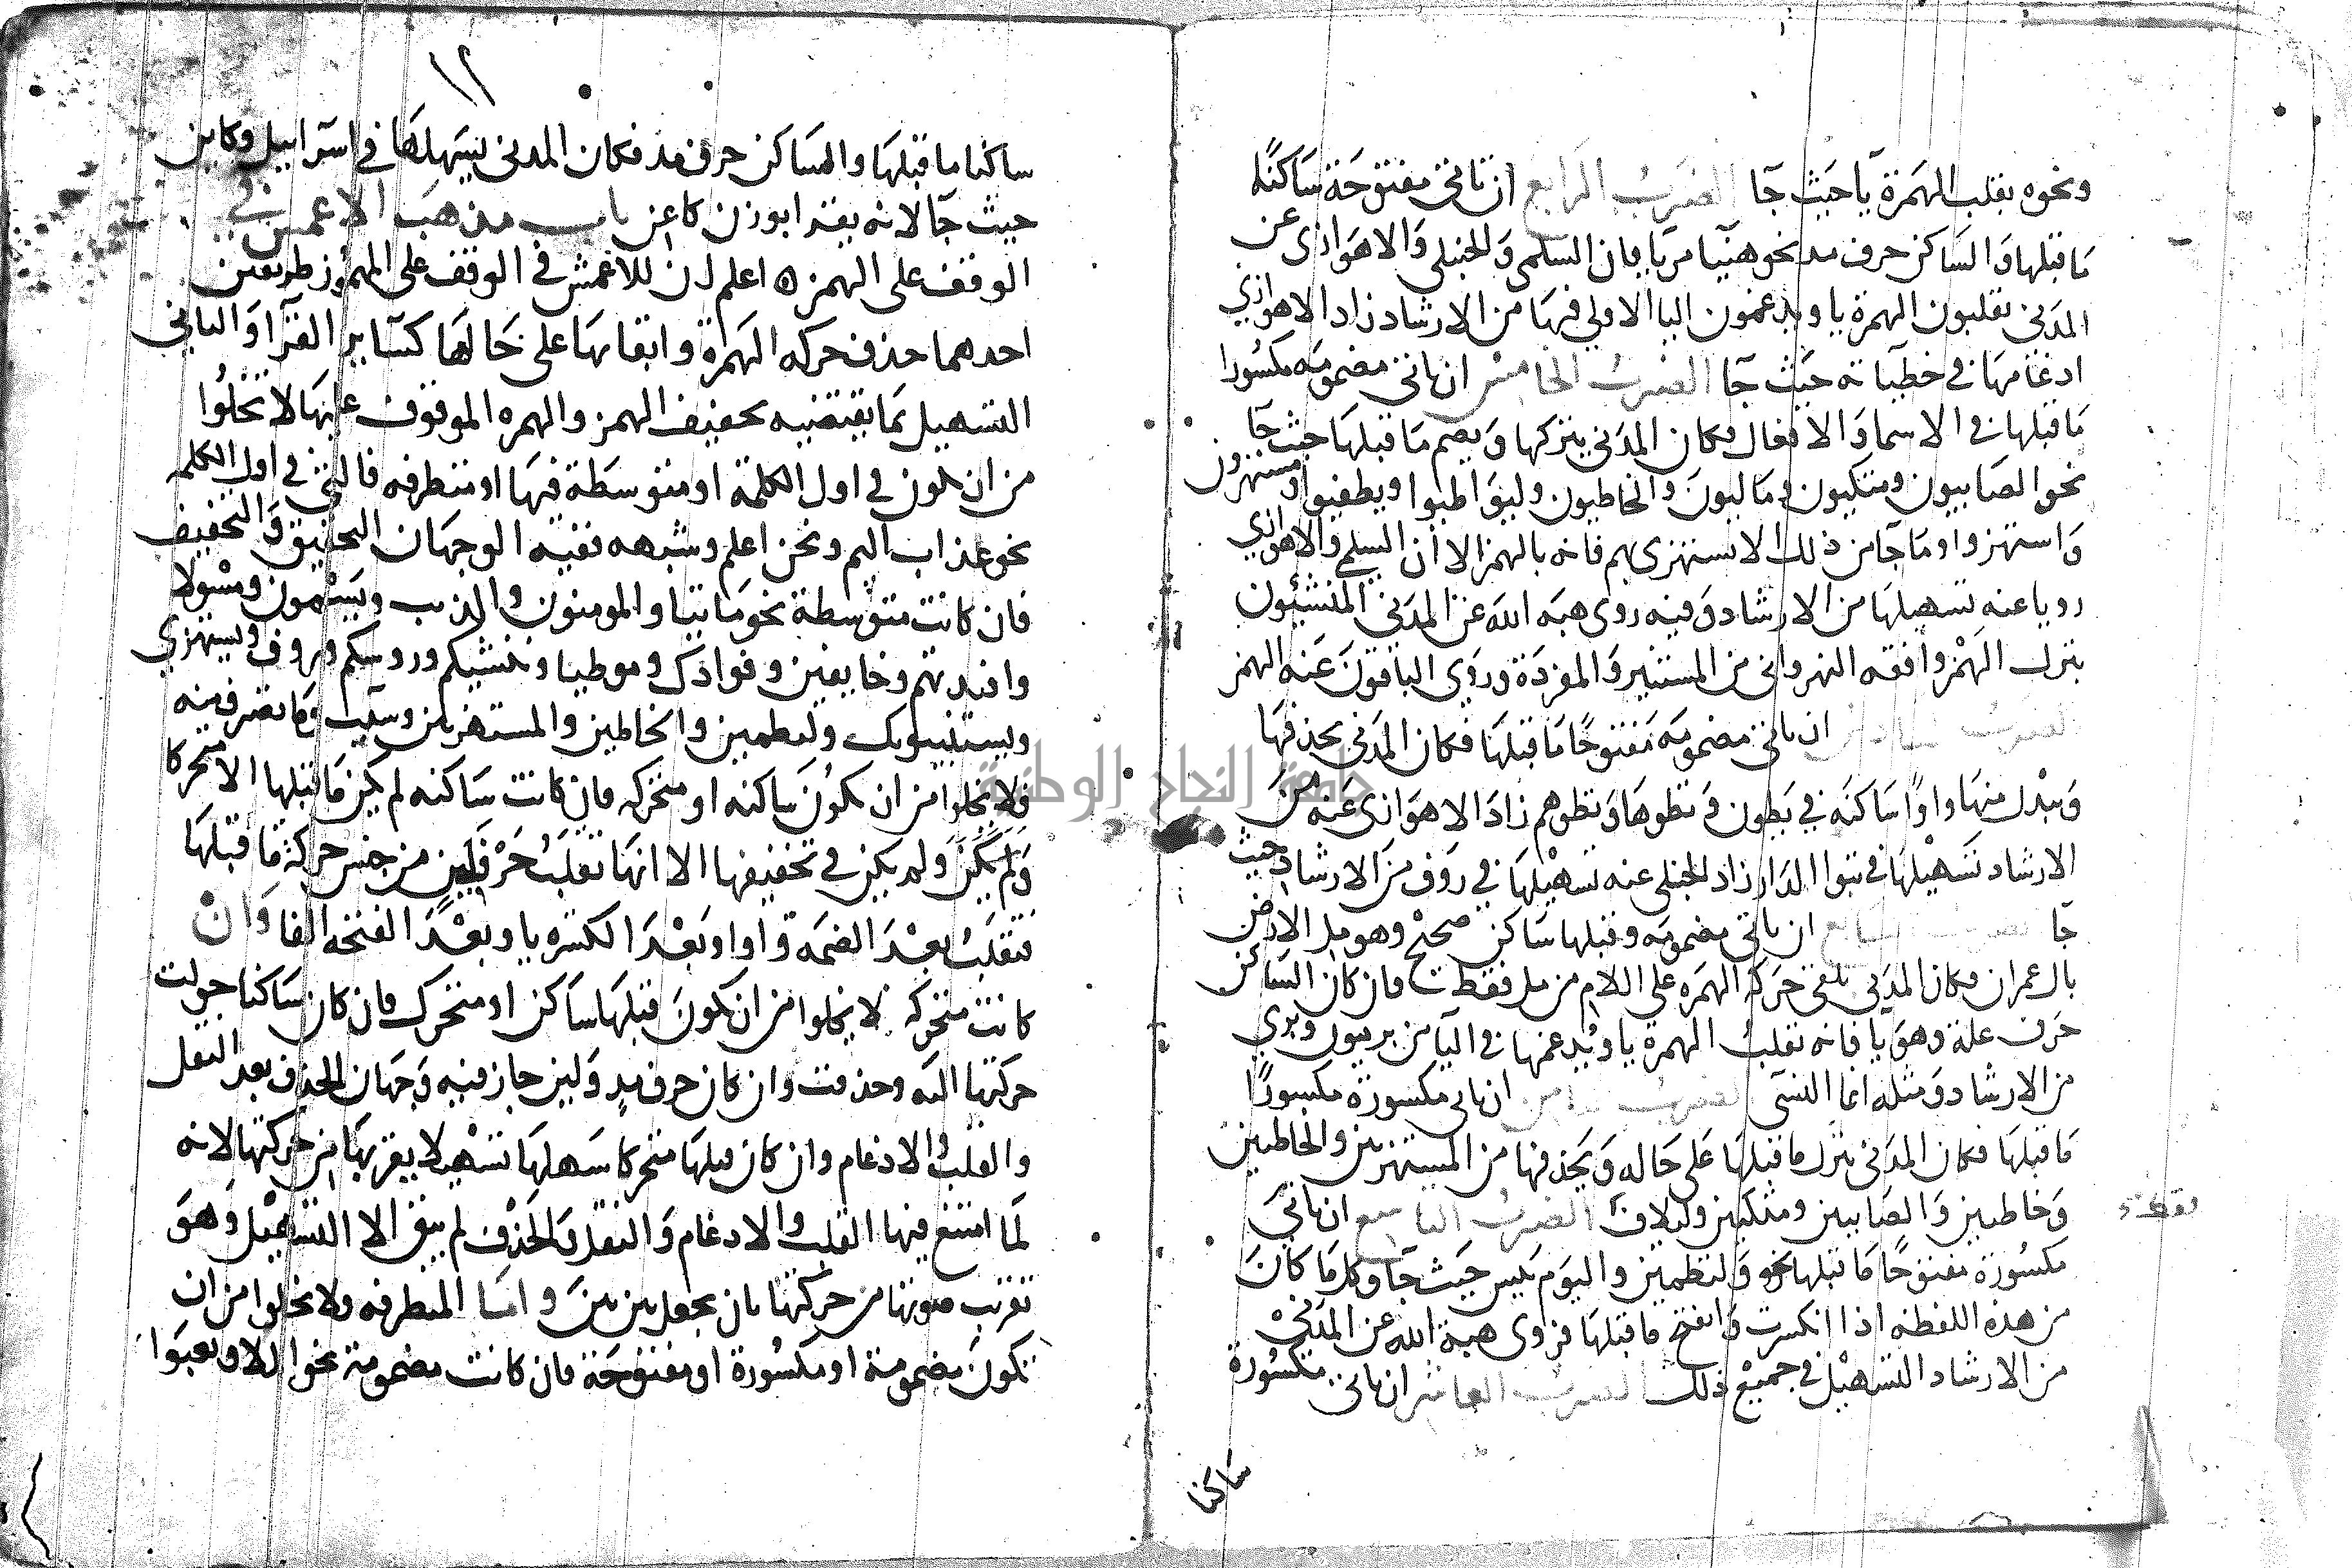 ونحوه بقلب الهمزة يا حيث جآ الضرب الرابع ان تاتي مفتوحة ساكنًا
ما قبلها والساكن حرف مد نحو هنيا مريا فان السلمي والحنبلي والاهوازي عن
المدني يقلبون الهمزة يا ويدغمون اليا الاولي فيها من الارشاد زاد الاهوازي
ادغامها في خطياته حيث جآ الضرب الخامس ان ياتي مضمومه مكسورا
ما قبلها في الاسما والافعال فكان المدني يتركها ويضم ما قبلها حيث جآ
نحو الصابيون ومتكيون وماليون والخاطيون وليواطيوا ويطفيوا ومستهزون
واستهزوا وما جآ من ذلك الا يستهزي بهم فانه بالهمز الا ان السلمي والاهوازي
رويا عنه تسهيلها من الارشاد وفيه روى هبه الله عن المدني المنشئون
بترك الهمز وافقه النهرواني من المستنير والمفردة وروي الباقون عنه الهمز
الضرب السادس ان ياتي مضمومه مفتوحًا ما قبلها فكان المدني يحذفها
ويبدل منها واوًا ساكنه في يطون وتطوها وتطوهم زاد الاهوازي عنه من
الارشاد تسهيلها في تبوا الدار زاد الحنبلي عنه تسهيلها في روف من الارشاد حيث
جآ الضرب السابع ان ياتي مضمومه وقبلها ساكن صحيح وهو مل الارض
بال عمران فكان المدني يلقي حركه الهمزه علي اللام من مل فقط فان كان الساكن
حرف علة وهو يا فانه يقلب الهمزة يا ويدغمها في اليا من بريون وبري
من الارشاد ومثله انما النسي الضرب الثامن ان ياتي مكسورة مكسورًا
ما قبلها فكان المدني يترك ما قبلها على حاله ويحذفها من المستهزين والخاطين
وخاطين والصابين ومتكين وليلاف الضرب التاسع ان تاتي
مكسورة مفتوحًا ما قبلها نحو ولتطمين واليوم يليس حيث جآ وكل ما كان
من هذه اللفظه اذا انكسرت وانفتح ما قبلها فروى هبة الله عن المدني
من الارشاد التسهيل في جميع ذلك الضرب العاشر ان ياتي مكسورة
ساكنا
١٢
ساكنا ما قبلها والساكن حرف مد فكان المدني يسهلها في اسرآاييل وكاين
حيث جآ لانه يقرا بوزن كاعن باب مذهب الاعمش في
الوقف على الهمز ه اعلم ان للاعمش في الوقف على المهموز طريقين
احدهما حذف حركه الهمزة وابقايها على حالها كسآير القرآ والثاني
التسهيل بما يقتضيه تخفيف الهمز والهمزه الموقوف عليها لا تخلوا
من ان تكون في اول الكلمة او متوسطة فيها او متطرفه فالتي في اول الكلمه
نحو عذاب اليم ونحن اعلم وشبهه ففيه الوجهان التحقيق والتخفيف
فان كانت متوسطة نحو ما نتنا والمومنون والذيب ويسئمون ومسولا
وافيدتهم وخايفين وفوادك وموطيا وننشيكم وروسكم وروف ويستهزي
ويستنبيونك ولتطمين والخاطين والمستهزين وسيت وما تصرف منه
فلا يخلوا من ان تكون ساكنه او متحركه فان كانت ساكنه لم يكن ما قبلها الا متحركا
ولم يكن ولم يكن في تخفيفها الا انها تقلب حرف لين من جنس حركة ما قبلها
فتقلب بعد الضمه واوا وبعد الكسره يا وبعد الفتحه الفا وان
كانت متحركه لا يخلوا من ان تكون قبلها ساكن او متحرك فان كان ساكنا حولت
حركتها اليه وحذفت وان كان حرف مد ولين جاز فيه وجهان الحذف بعد النقل
والقلب والادغام وان كان قبلها متحركا سهلها تسهيلا يقربها من حركتها لانه
لما امتنع فيها القلب والادغام والنقل والحذف لم يبق الا التسهيل وهو
تقريب صوتها من حركتها بان يجعل بين بين واما المتطرفه ولا تخلوا من ان
تكون مضمومة او مكسورة او مفتوحة فان كانت مضمومة نحو الملا ويعبوا
جامعة النجاح الوطنية